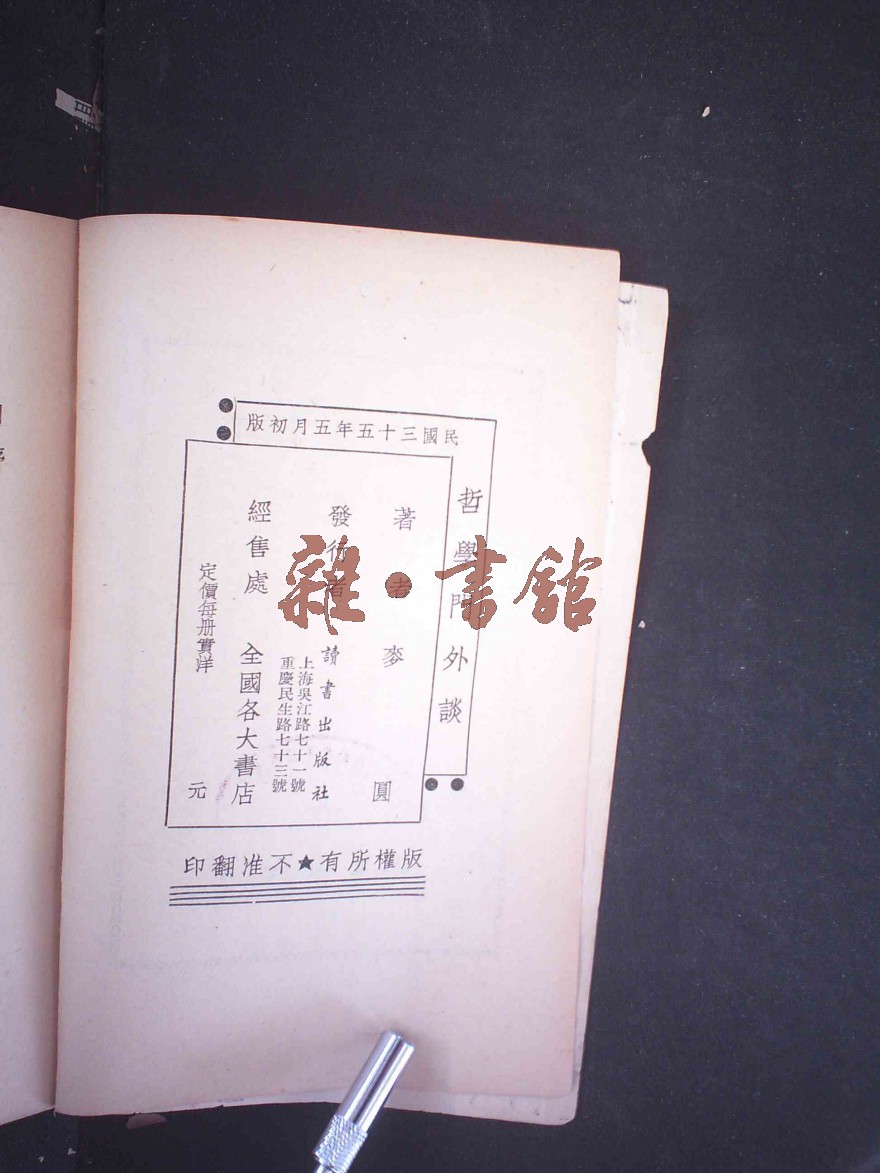 民國三十五年五月初版
哲學門外談
著者 麥園
發行者 讀書出版社
上海吳江路七十一號
重慶民生路七十三號
經售處 全國各大書店
定價每册實洋 元
版權所有★不准翻印
雜·書館